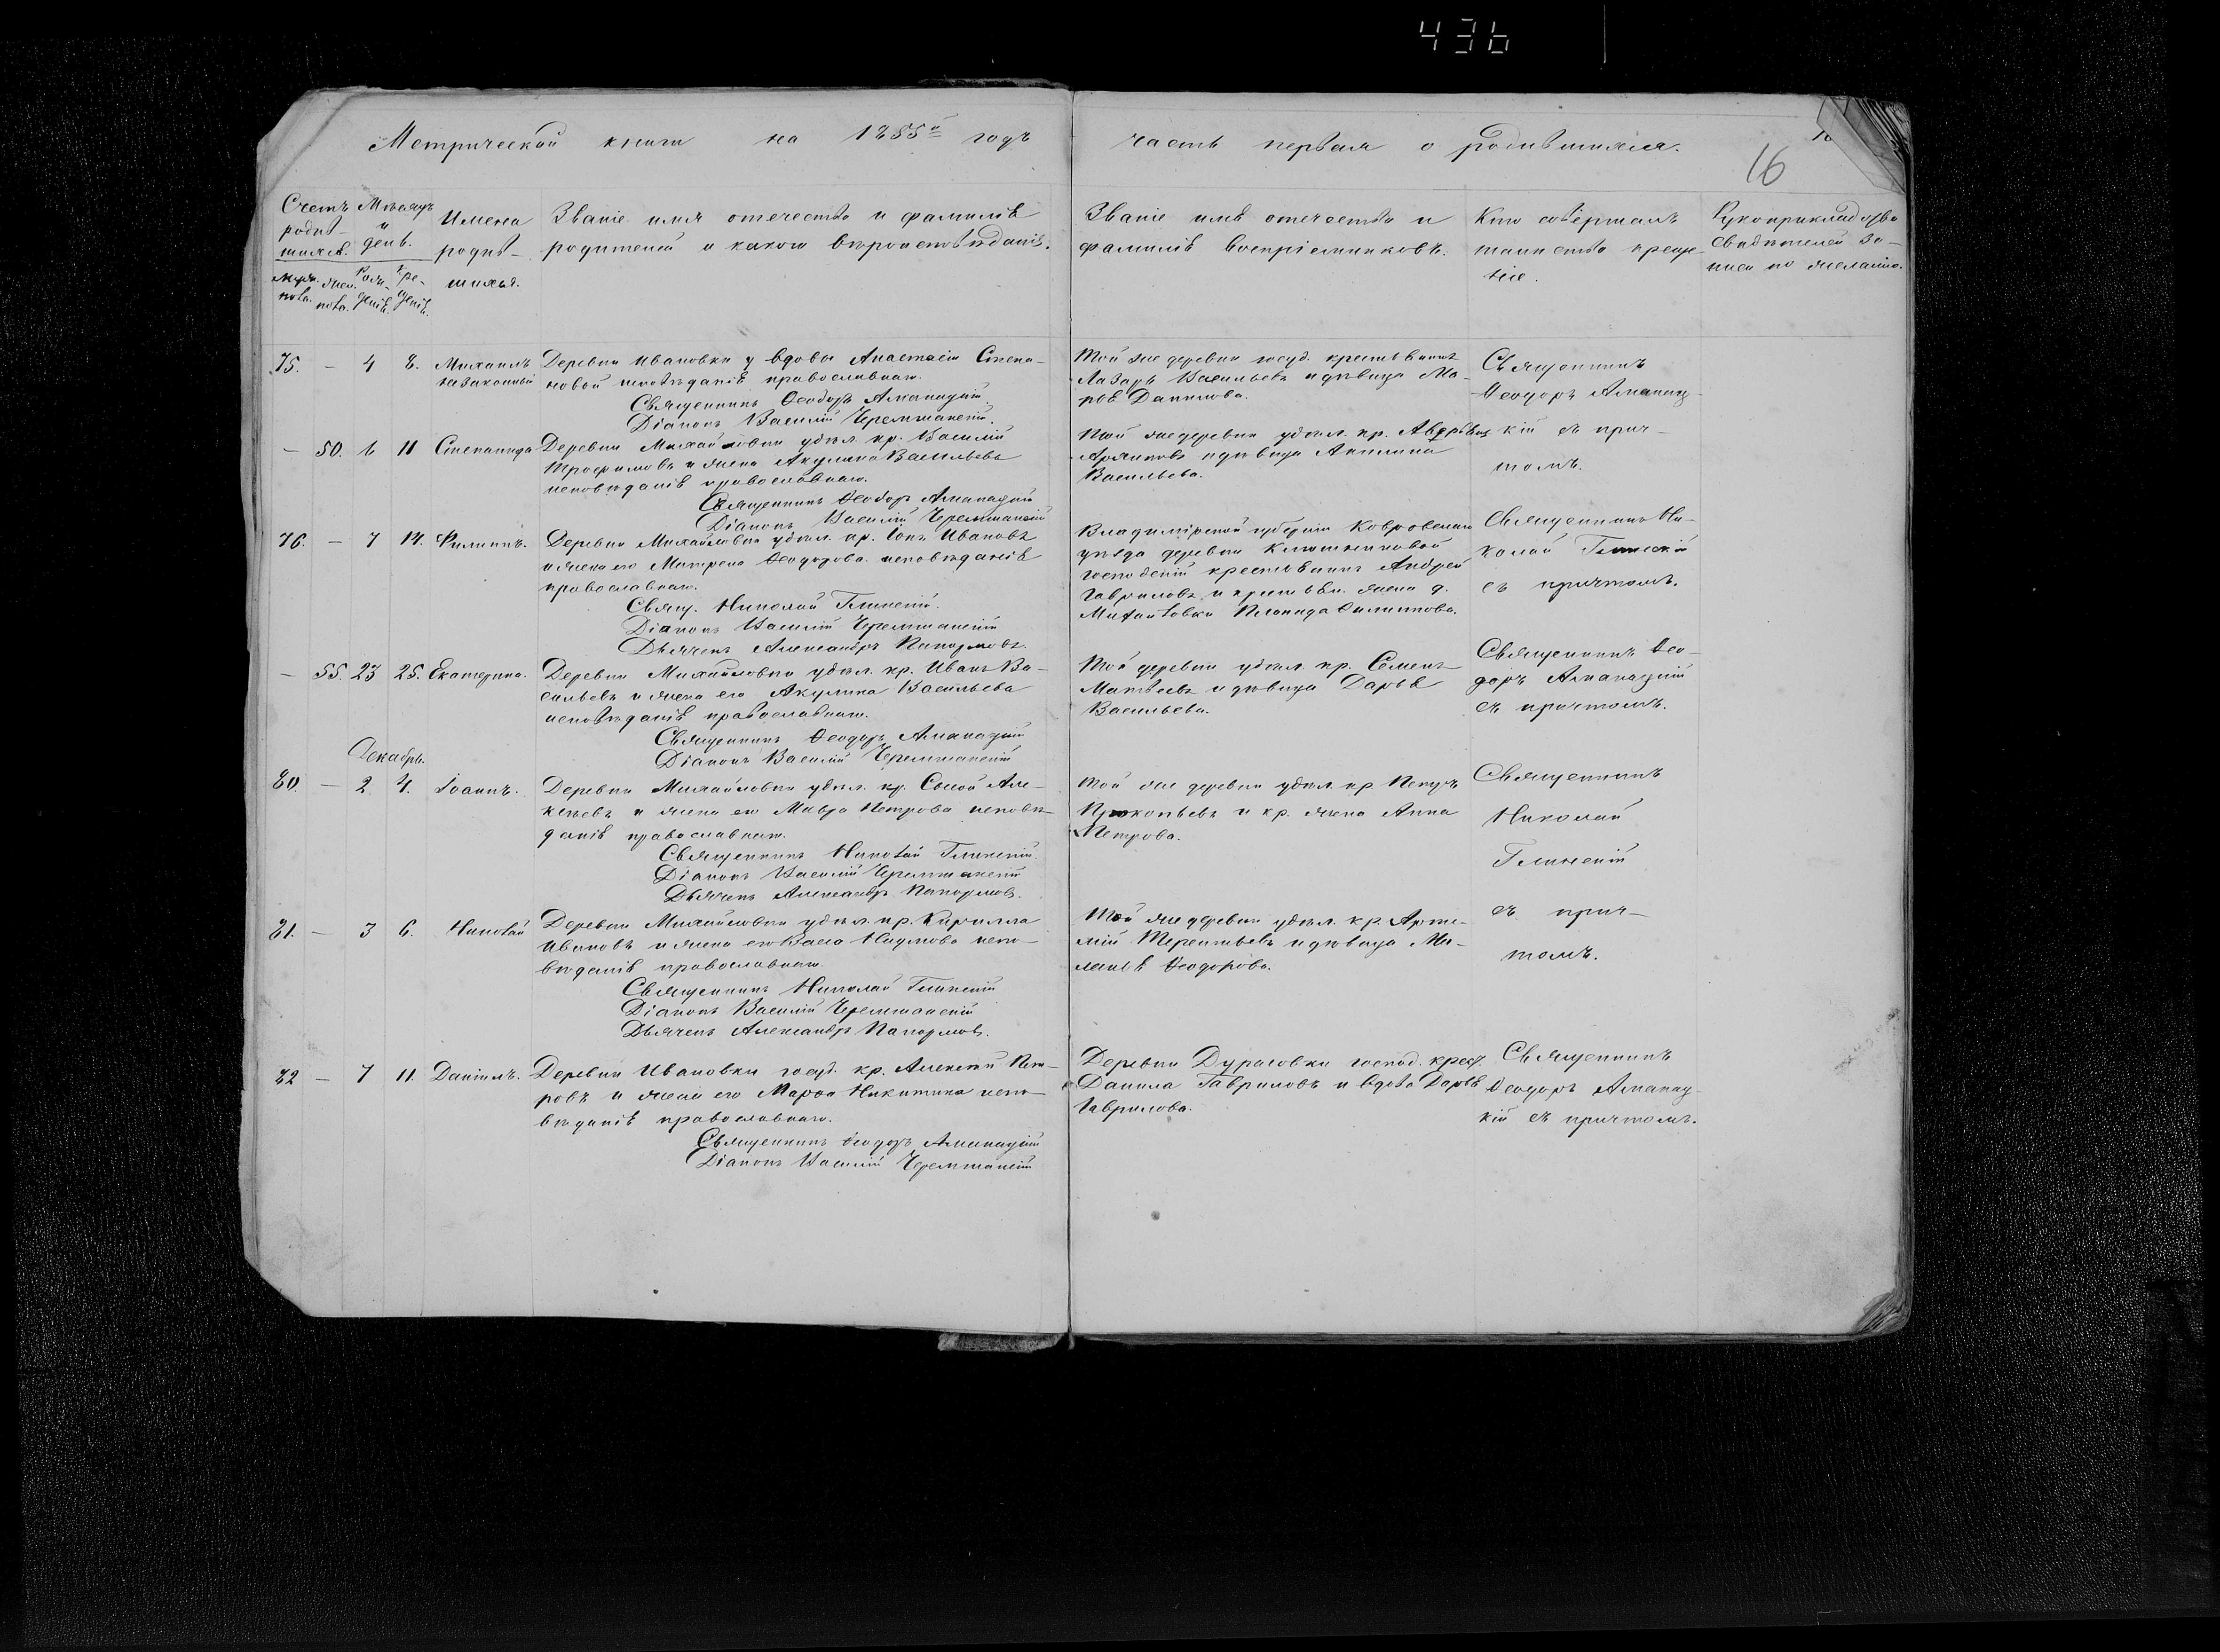 436
Метрической книги на 1855й годъ
часть первая о родившихся.
16
Счетъ родив-
шихся.
Мѣсяцъ
и
день.
Имена
родив-
шихся.
Званіе имя отечество и фамилія
родителей и какого вѣроисповѣданія.
Званіе имя отечество и
фамилія воспріемниковъ.
Кто совершалъ
таинство креще-
нія.
Рукоприкладство
свидѣтелей за-
писи по желанію.
75. — 4 8. Михаилъ
незаконный
Деревни Ивановки у вдовы Анастасіи Степа-
новой исповѣданія православнаго.
Священникъ Ѳеодоръ Алманацкій.
Діаконъ Василій Черемшанскій.
Той же деревни госуд. крестьянинъ
Лазарь Васильевъ и дѣвица Ма-
Данилова.
Священникъ
Ѳеодоръ Алманац-
кій съ прич-
томъ.
— 50. 6 11 Степанида
Деревни Михайловки удѣл. кр. Василій
Трофимовъ и жена Акулина Васильева
исповѣданія православнаго.
Священникъ Ѳеодоръ Алманацкій
Діаконъ Василій Черемшанскій
той же деревни удѣл. кр.
и дѣвица Акилина
Васильева.
76. — 7 14. Филиппъ.
Деревни Михайловки удѣл. кр. Іонъ Ивановъ
и жена его Матрена Ѳеодорова исповѣданія
православнаго.
Свящ. Николай Глинскій.
Діаконъ Василій Черемшанскій
Дьячекъ Александръ
Владимірской губерніи Ковровскаго
уѣзда деревни
господскій крестьянинъ Андрей
Гавриловъ и крестьян. жена д.
Михайловки Филиппова.
Священникъ Ни-
колай Глинскій
съ причтомъ.
— 55. 23 25. Екатерина.
Деревни Михайловки удѣл. кр. Иванъ Ва-
сильевъ и жена его Акулина Васильева
исповѣданія православнаго.
Священникъ Ѳеодоръ Алманацкій
Діаконъ Василій Черемшанскій
Той деревни удѣл. кр. Семенъ
Матвеевъ и дѣвица Дарья
Васильева.
Священникъ Ѳео-
доръ Алманацкій
съ причтомъ.
Декабрь.
80 — 2 4. Іоаннъ.
Деревни Михайловки удѣл. кр. Сысой Але-
ксѣевъ и жена его Мавра Петрова исповѣ-
данія православнаго.
Священникъ Николай Глинскій
Діаконъ Василій Черемшанскій
Дьячекъ Александръ
той же деревни удѣл. кр. Петръ
Прокопьевъ и кр. жена Анна
Петрова.
Священникъ
Николай
Глинскій
съ прич-
томъ.
81. — 3 6. Николай
Деревни Михайловки удѣл. кр. Кирилла
Ивановъ и жена его Васса Наумова испо-
вѣданія православнаго.
Священникъ Николай Глинскій
Діаконъ Василій Черемшанскій
Дьячекъ Александръ
Той же деревни удѣл. кр. Арте-
мій Терентьевъ и дѣвица Ме-
ланья Ѳеодорова.
82 — 7 11. Даніилъ.
Деревни Ивановки госуд. кр. Алексѣй Пет-
ровъ и жена его Марѳа Никитина испо-
вѣданія православнаго.
Священникъ Ѳеодоръ Алманацкій
Діаконъ Василій Черемшанскій
Деревни Дурасовки господ. крест.
Данила Гавриловъ и вдова Дарья
Гаврилова.
Священникъ
Ѳеодоръ Алманац-
кій съ причтомъ.